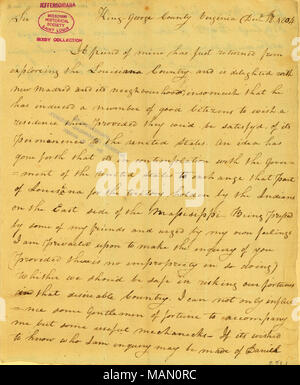 JEFFERSONIANA
MISSOURI
HISTORICAL
SOCIETY
SAINT LOUIS
BIXBY COLLECTION
Sir King George County Virginia
A friend of mine has just returned from
exploring the Louisiana Country and is delighted with
new Madrid and its neighbourhood insomuch that he
has induced a number of good Citizens to wish a
residence there provided they could be satisfyd. of its
permanence to the united States. An idea has
gone forth that its in contemplation with the Govern
-ment of the United States to exchange that part
of Louisiana for the territory holden by the Indians
on the East side of the Massissippi. Being pressed
by some of my friends and urged by my own feelings
I am prevailed upon to make the inquiry of you
(provided there is no impropriety in so doing)
Whether we should be safe in risking our fortunes
in that desireable Country. I can not only influe
-nce some Gentlemen of fortune to accompany
me but some useful mechanicks. If its wished
to know who I am inquiry may be made of
alamy
Image ID: MAN0RC
www.alamy.com